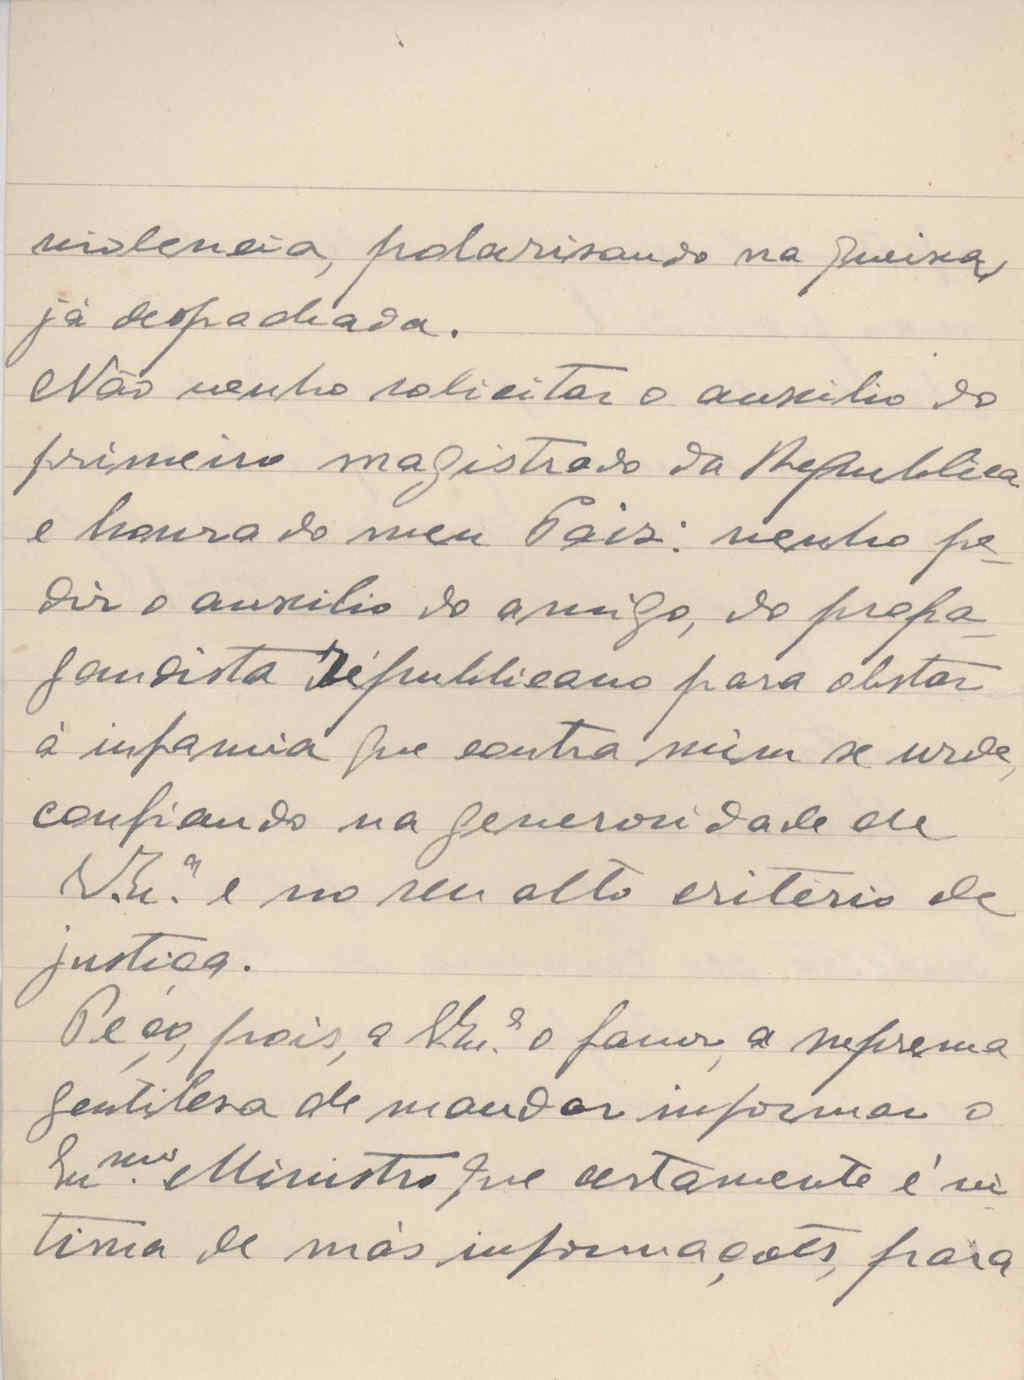 violencia, polarisando na queixa,
já despachada.
Não venho solicitar o auxilio do
primeiro magistrado da Republica
e honra do meu Paiz: venho pe-
dir o auxilio do amigo, do propa-
gandista republicano para obstar
á infamia que contra mim se urde,
confiando na generosidade de
V. Ex.ª e no seu alto critério de
justiça.
Peço, pois, a V. Ex.ª o favor, a suprema
gentilesa de mandar informar o
Ex.mo Ministro que certamente é vi-
tima de más informações, para